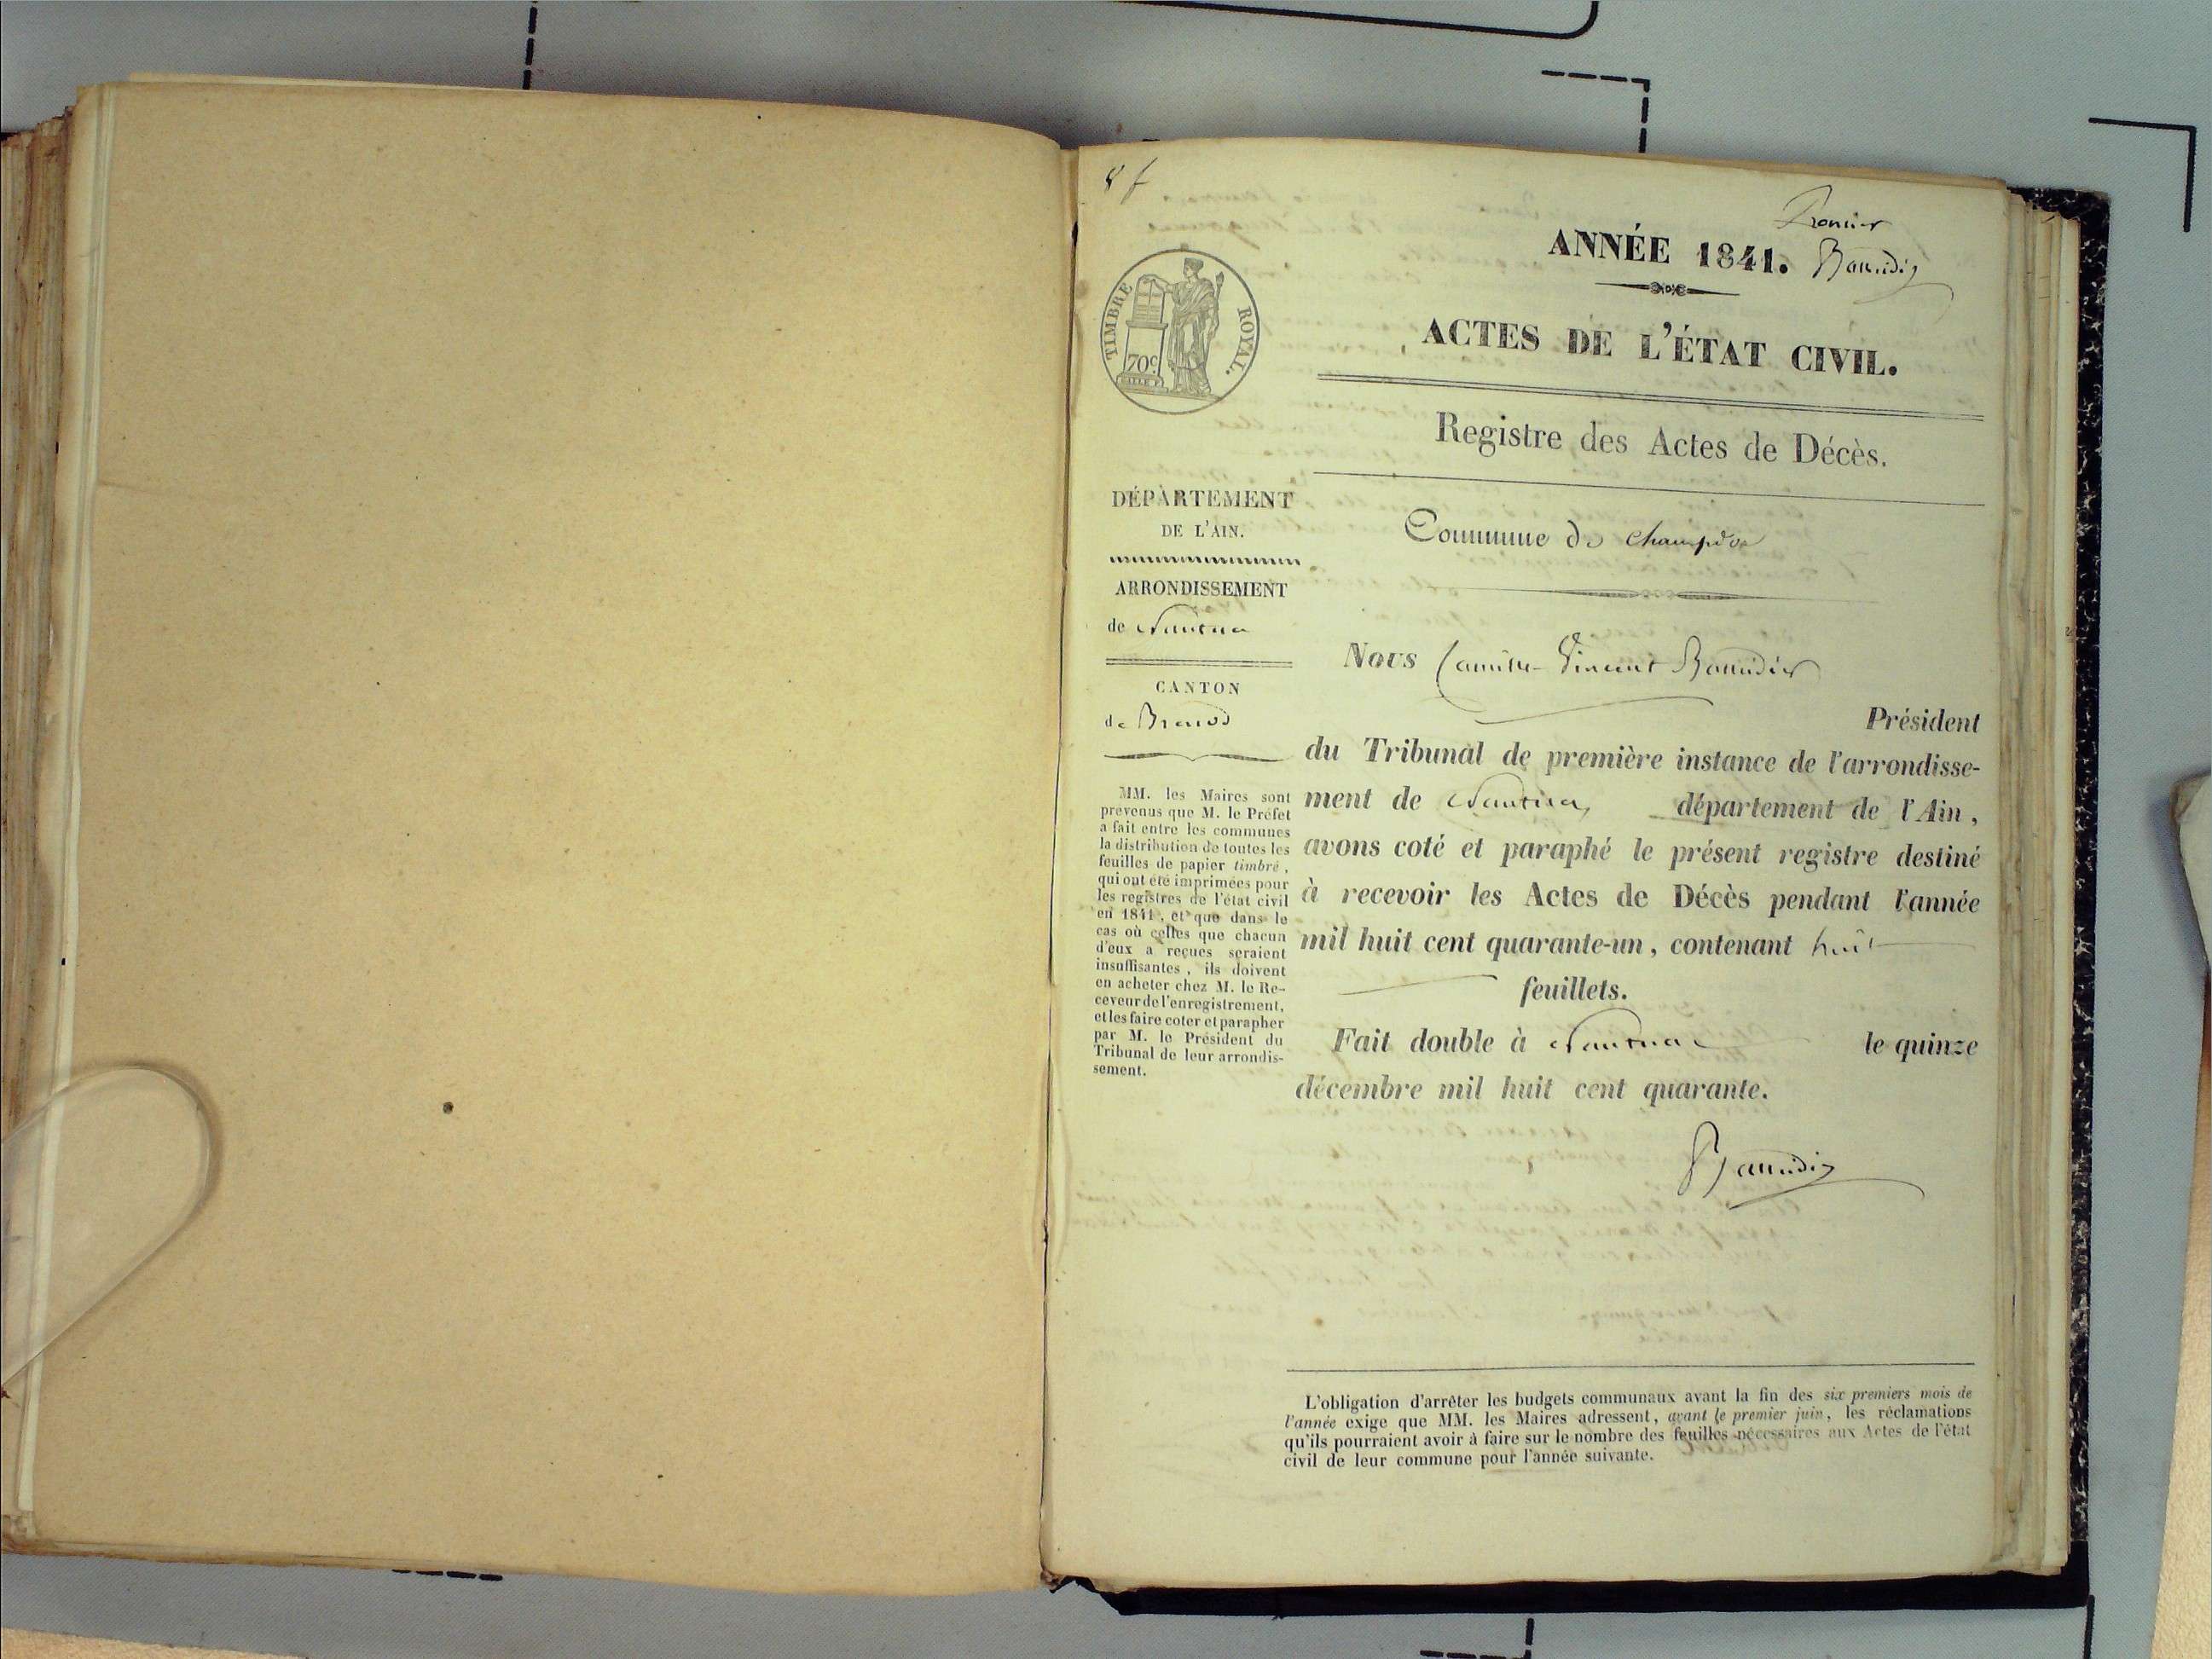 8 f
Premier
ANNÉE 1841. Baudier
TIMBRE ROYAL.
70c
ACTES DE L'ÉTAT CIVIL.
Registre des Actes de Décès.
DÉPARTEMENT
DE L'AIN.
ARRONDISSEMENT
de Nantua
CANTON
de Brenod
MM. les Maires sont
prévenus que M. le Préfet
a fait entre les communes
la distribution de toutes les
feuilles de papier timbré,
qui ont été imprimées pour
les registres de l'état civil
en 1841, et que dans le
cas où celles que chacun
d'eux a reçues seraient
insuffisantes, ils doivent
en acheter chez M. le Re-
ceveur de l'enregistrement,
et les faire coter et parapher
par M. le Président du
Tribunal de leur arrondis-
sement.
Commune de Champdor
Nous Camille Vincent Baudier
Président
du Tribunal de première instance de l'arrondisse-
ment de Nantua, département de l'Ain,
avons coté et paraphé le présent registre destiné
à recevoir les Actes de Décès pendant l'année
mil huit cent quarante-un, contenant huit
feuillets.
Fait double à Nantua le quinze
décembre mil huit cent quarante.
Baudier
L'obligation d'arrêter les budgets communaux avant la fin des six premiers mois de
l'année exige que MM. les Maires adressent, avant le premier juin, les réclamations
qu'ils pourraient avoir à faire sur le nombre des feuilles nécessaires aux Actes de l'état
civil de leur commune pour l'année suivante.